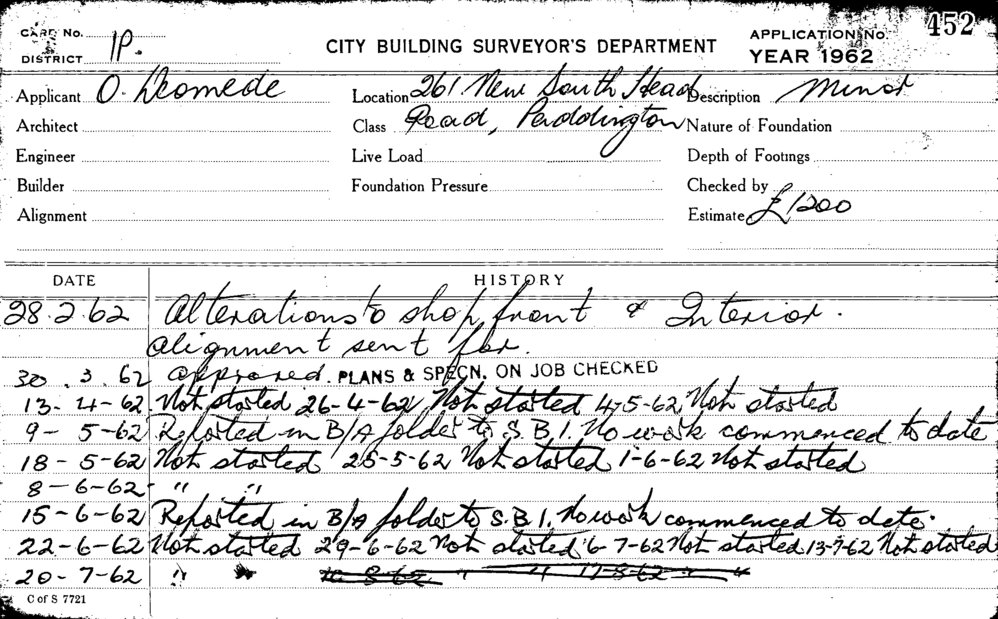 CARD No. APPLICATION No. 452
DISTRICT 1P. CITY BUILDING SURVEYOR'S DEPARTMENT YEAR 1962
Applicant O. Deomede Location 261 New South Head Description Minor
Architect Class Road, Paddington Nature of Foundation
Engineer Live Load Depth of Footings
Builder Foundation Pressure Checked by
Alignment Estimate £1200
DATE HISTORY
28.2.62 Alterations to shop front & Interior.
Alignment sent for.
30.3.62 Approved. PLANS & SPECN. ON JOB CHECKED
13-4-62 Not started 26-4-62 Not started 4-5-62 Not started
9-5-62 Reported in B/A folder to S.B.I. No work commenced to date
18-5-62 Not started 25-5-62 Not started 1-6-62 Not started
8-6-62 " "
15-6-62 Reported in B/A folder to S.B.I. No work commenced to date.
22-6-62 Not started 29-6-62 Not started 6-7-62 Not started 13-7-62 Not started
20-7-62 " "
C of S 7721